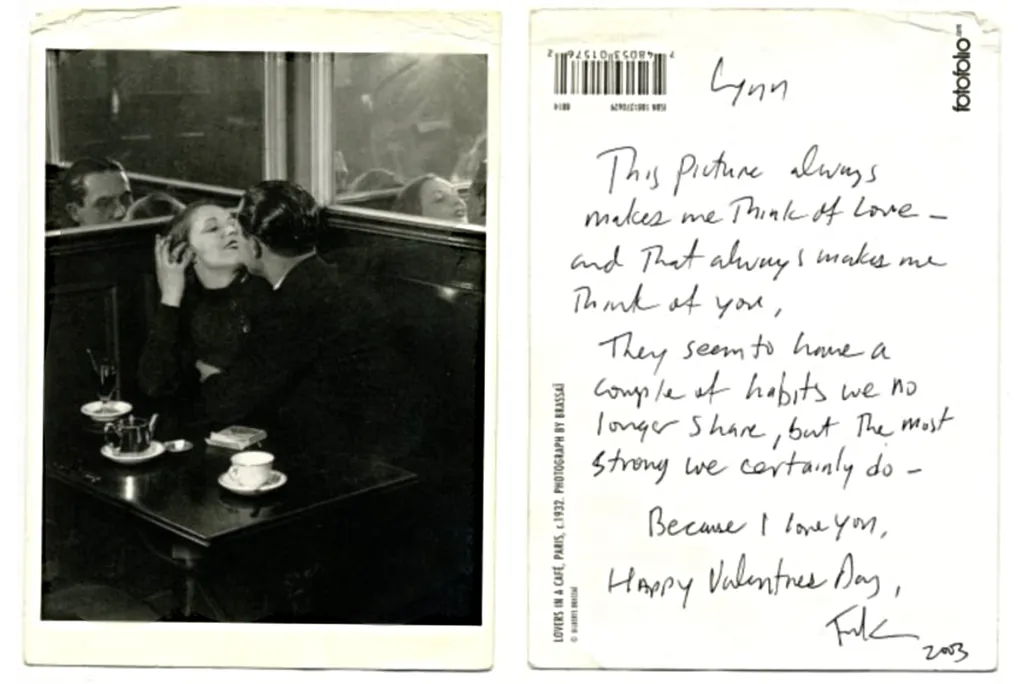 7 48053 01576 2
0814
ISBN 1881270629
fotofolio.com
Lynn
This picture always
makes me think of love –
and that always makes me
think of you,
They seem to have a
couple of habits we no
longer share, but the most
strong we certainly do –
Because I love you,
Happy Valentines Day,
2003
LOVERS IN A CAFÉ, PARIS, c.1932. PHOTOGRAPH BY BRASSAÏ
© GILBERTE BRASSAÏ